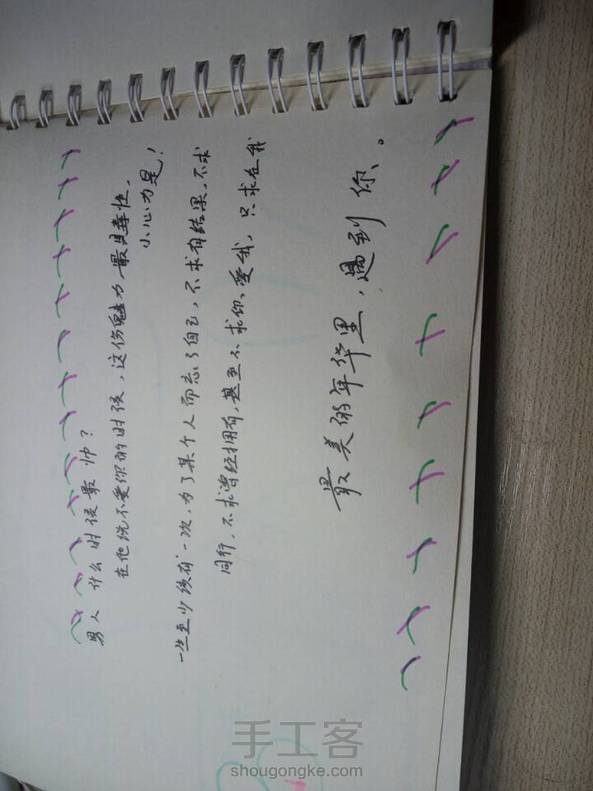 男人什么时候最帅？
在他说不爱你的时候，这份魅力最具毒性，
小心为是！
一生至少该有一次，为了某个人而忘了自己，不求有结果，不求
同行，不求曾经拥有，甚至不求你爱我，只求在我
最美的年华里，遇到你。
手工客
shougongke.com